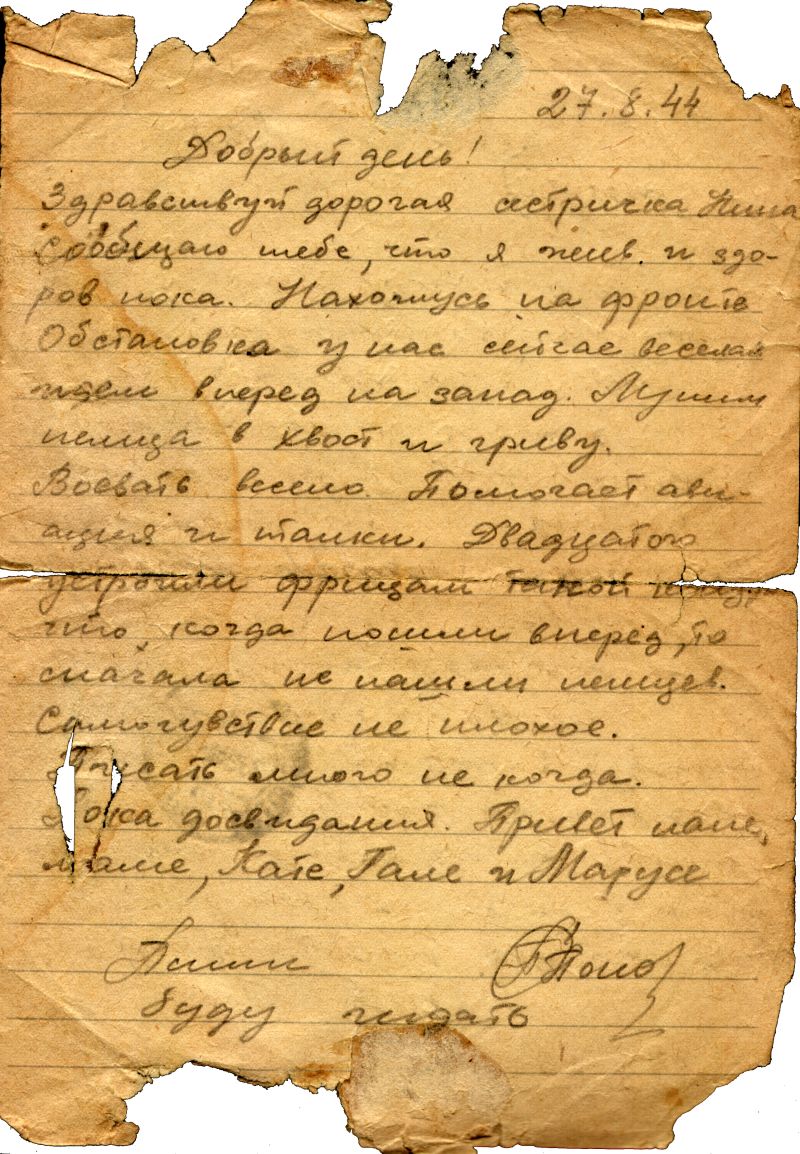 27.8.44
Добрый день!
Здравствуй дорогая сестричка Нина
сообщаю тебе, что я жив и здо-
ров пока. Нахожусь на фронте
Обстановка у нас сейчас веселая
идем вперед на запад. Лупим
немца в хвост и гриву.
Воевать весело. Помогает ави-
ация и танки. Двадцатого
устроили фрицам такой
что, когда пошли вперед, то
сначала не нашли немцев.
Самочувствие не плохое.
Писать много не когда.
Пока досвидания. Привет папе,
маме, Кате, Гале и Марусе
Пиши
буду ждать